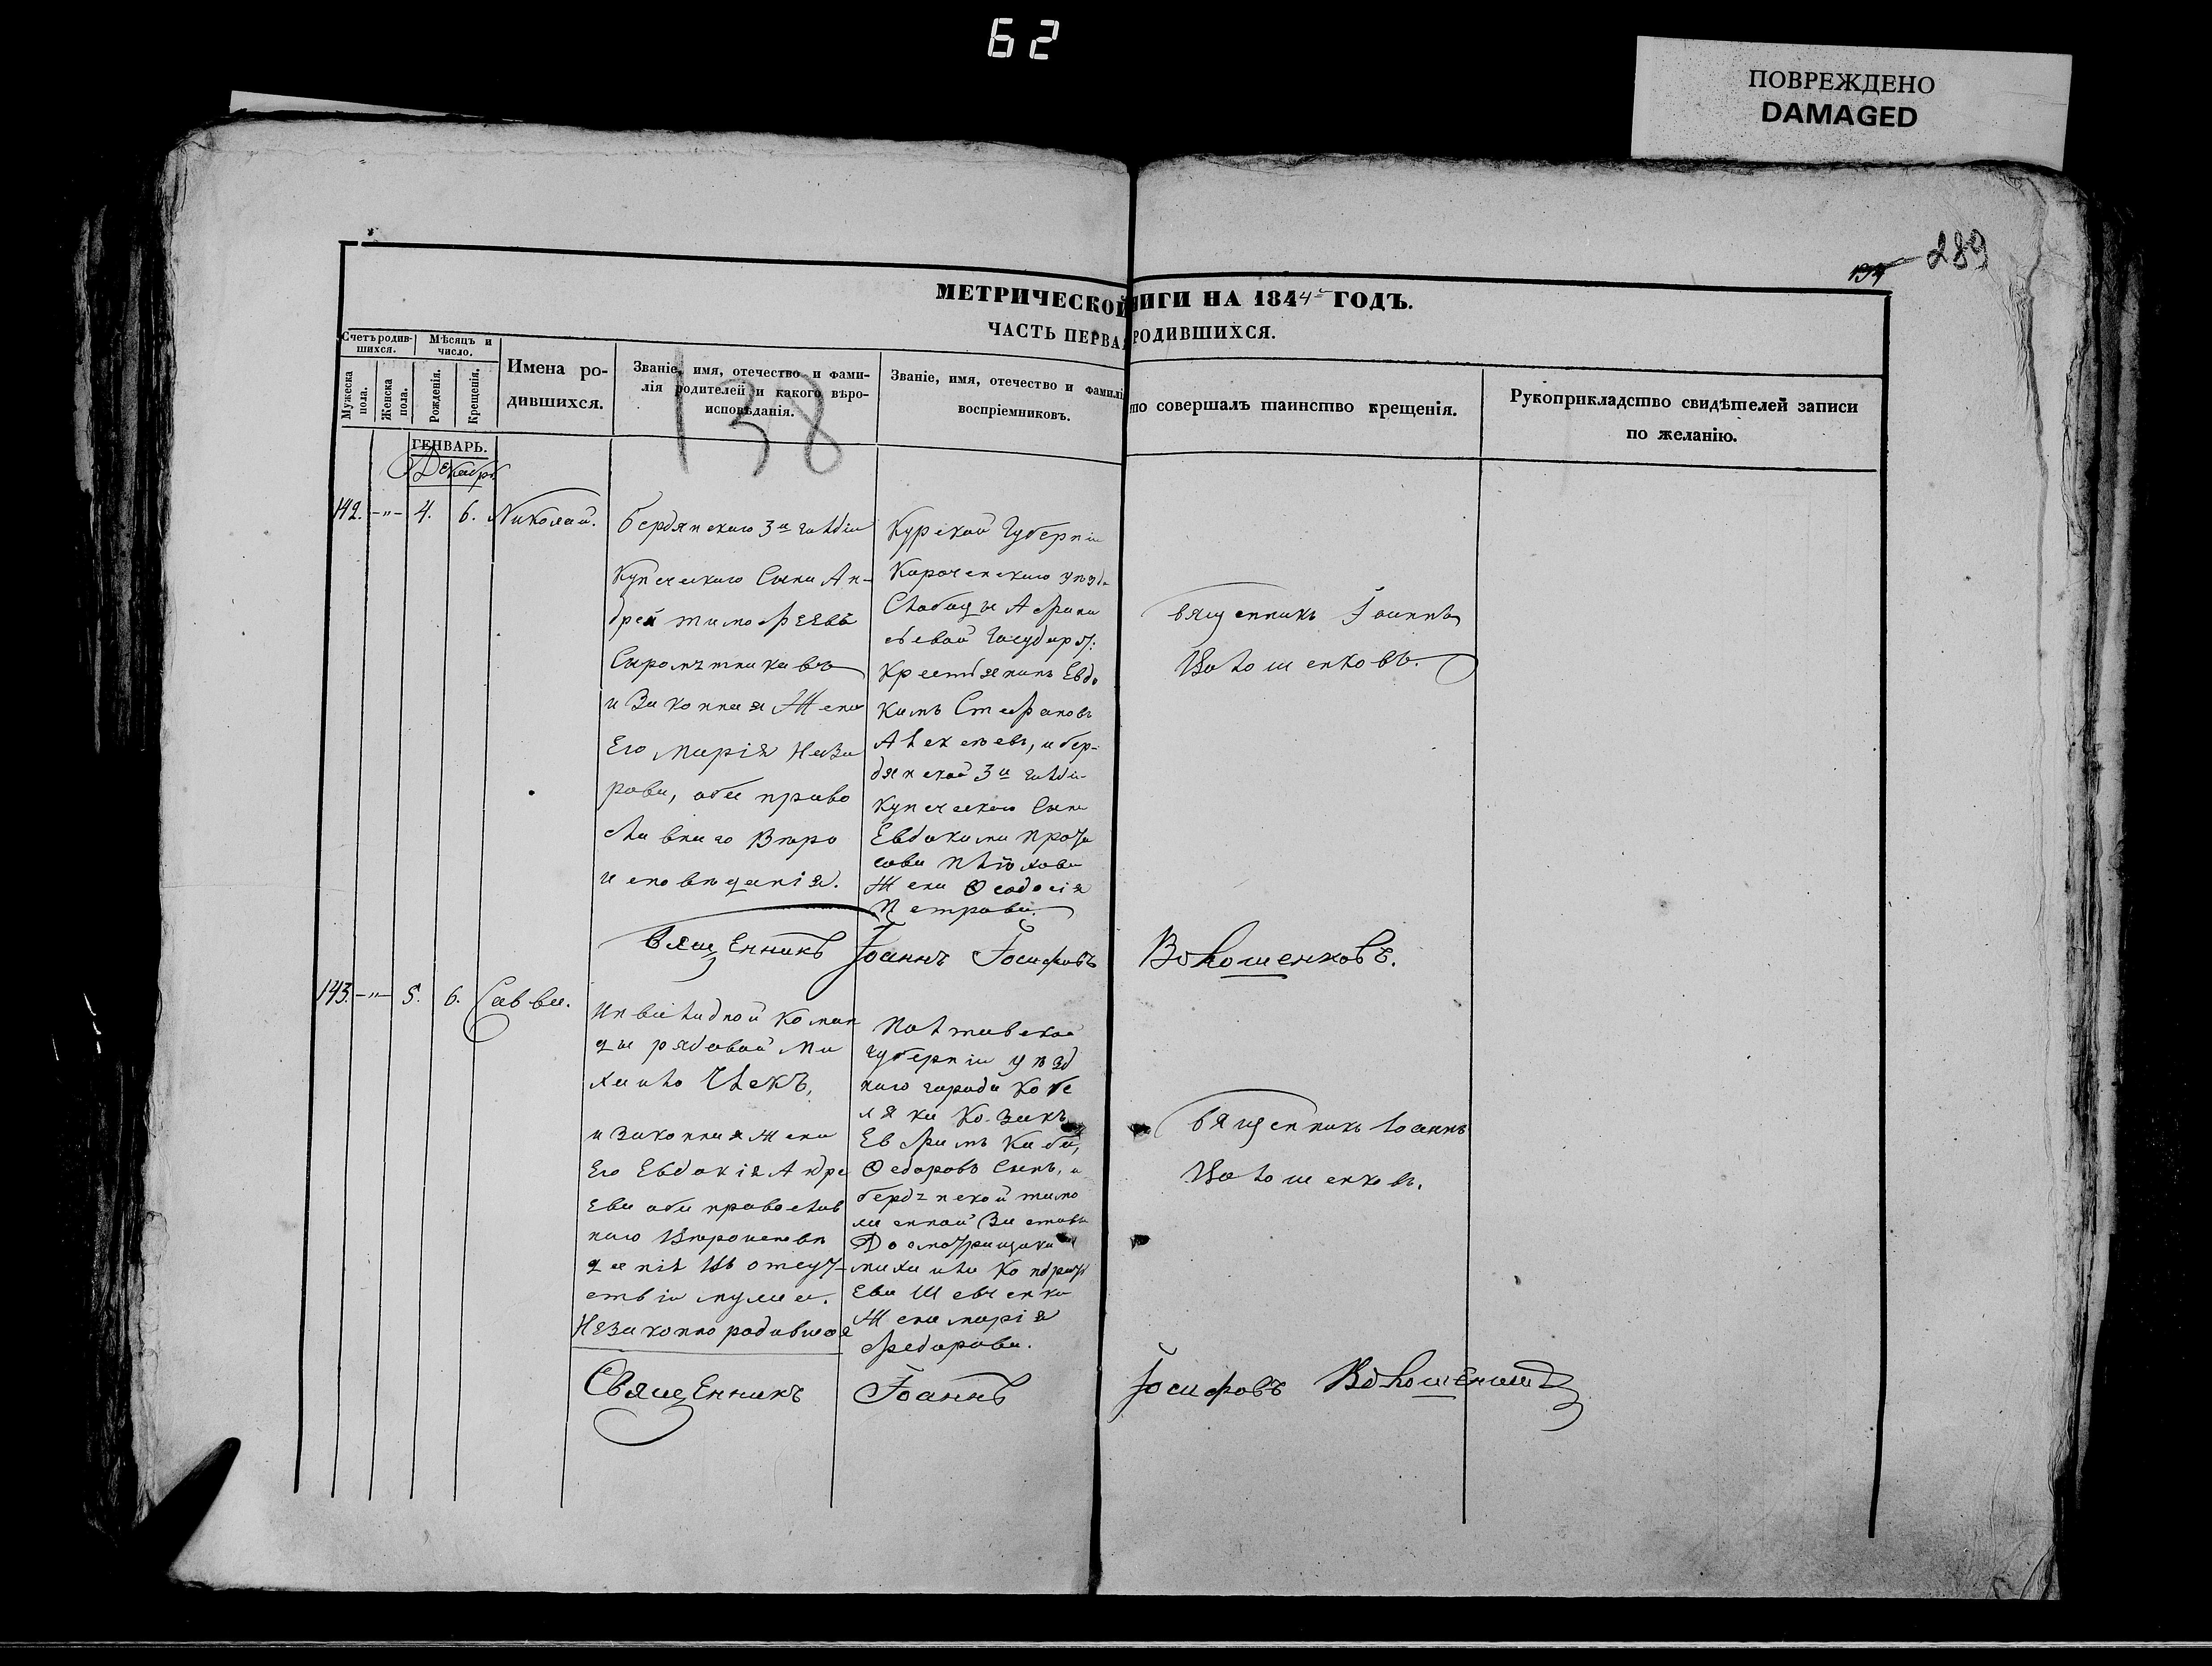 62
ПОВРЕЖДЕНО
DAMAGED
289
МЕТРИЧЕСКОЙ НИГИ НА 1844 ГОДЪ.
ЧАСТЬ ПЕРВА РОДИВШИХСЯ.
Счетъ родив-
шихся.
Мужеска
пола.
Женска
пола.
Мѣсяцъ и
число.
Рожденія.
Крещенія.
Имена ро-
дившихся.
Званіе, имя, отечество и фами-
лія родителей и какого вѣро-
исповѣданія.
Званіе, имя, отечество и фамилі
воспріемниковъ.
то совершалъ таинство крещенія.
Рукоприкладство свидѣтелей записи
по желанію.
138
ГЕНВАРЬ.
Декабрь
142. -"- 4. 6. Николай.
Бердянскаго 3й гильдіи
Купеческаго Сына Ан-
дрей Тимофеевъ
Сыромятниковъ
и Законная Жена
Его Марія Наза
рова, оба право
славнаго Вѣро
исповѣданія.
Курской Губерніи
Корочанскаго уѣзда
Слободы Афана
сьевой Государст:
Крестьянинъ Евдо
кимъ Стефановъ
Алексѣевъ, и бер-
дянской 3й гильдіи
Купеческаго Сына
Евдокима
Жена Феодосія
Петрова.
Священникъ Іоаннъ
Волошенковъ.
Священникъ Іоаннъ Іосифовъ Волошенковъ.
143. -"- 5. 6. Савва.
Инвалидной Коман
ды рядовой Ми
хаило
и Законная Жена
Его Евдокія Андре
ева оба православ
наго Вѣроисповѣ
данія Въ отсут-
ствіи мужа.
Незаконно родившися
Полтавской
губерніи уѣзд
наго города Кобе
ляки Козакъ
Ефимъ
Федоровъ Сынъ, и
бердянской тамо
женной Заставы
Досмотрщика
Михаила Кондрать
ева Шевченка
Жена Марія
Федорова.
Священникъ Іоаннъ
Волошенковъ.
Священникъ Іоаннъ Іосифовъ Волошенковъ